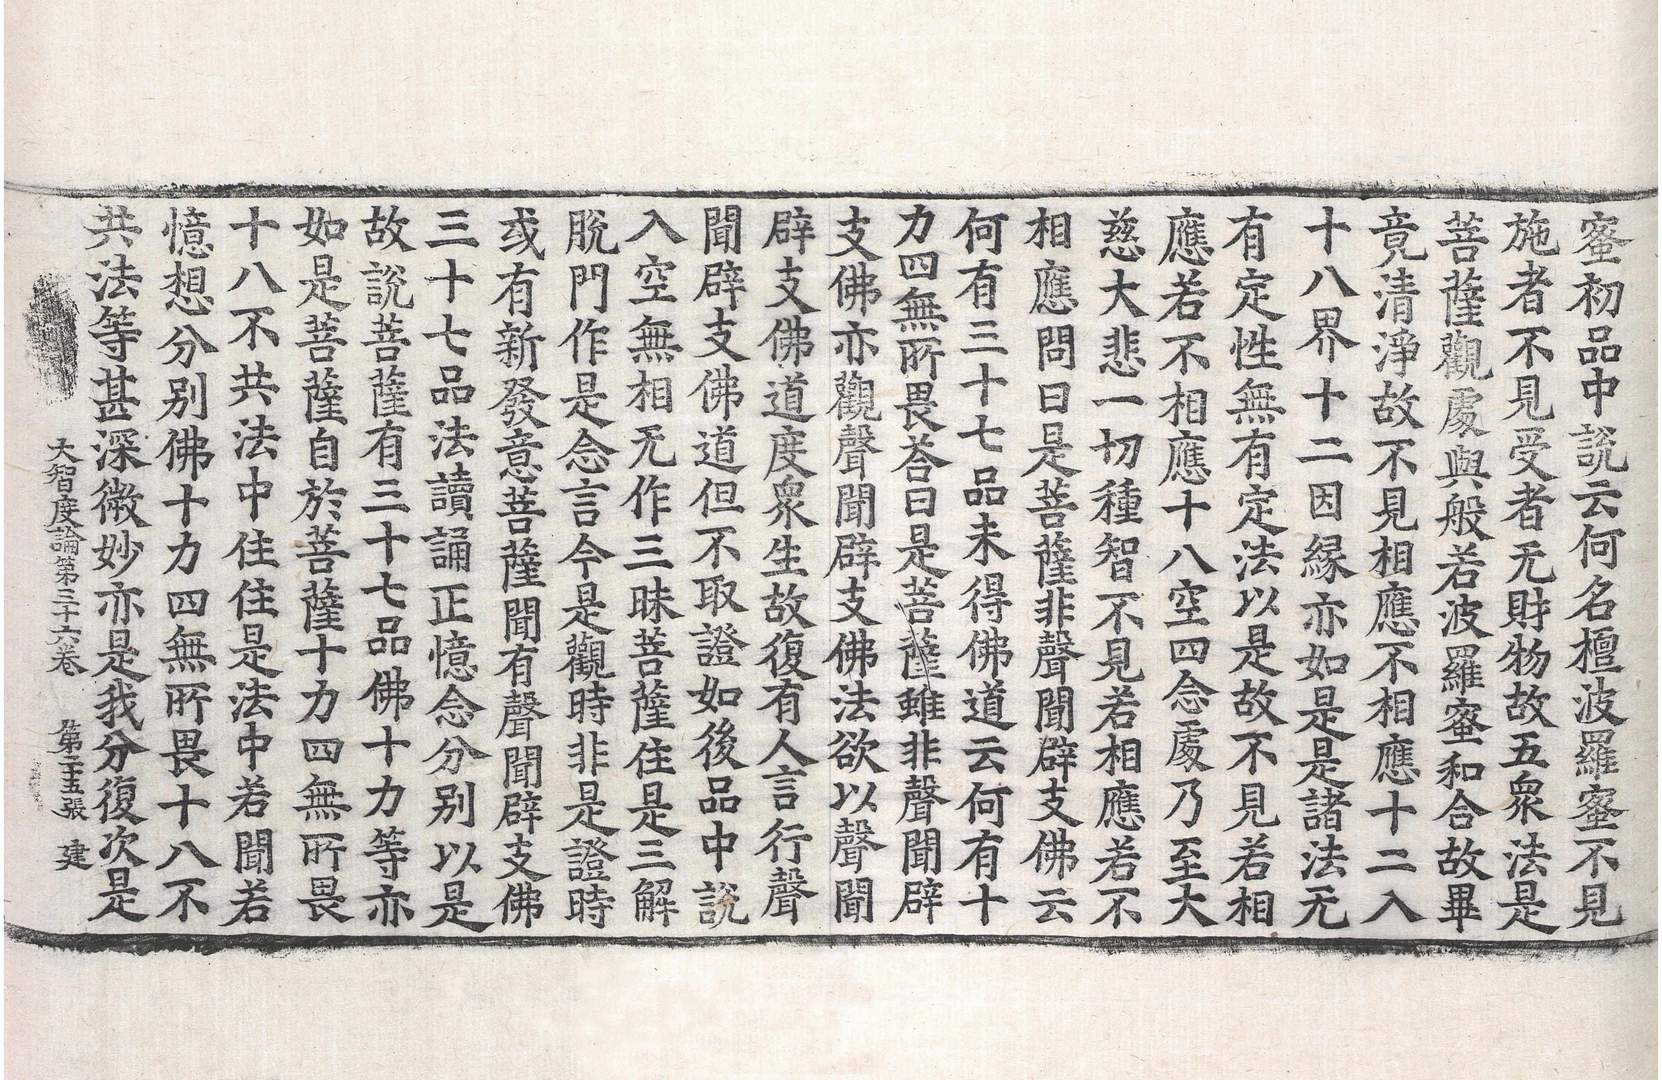 蜜初品中說云何名檀波羅蜜不見
施者不見受者无財物故五衆法是
菩薩觀處與般若波羅蜜和合故畢
竟清淨故不見相應不相應十二入
十八界十二因緣亦如是是諸法无
有定性無有定法以是故不見若相
應若不相應十八空四念處乃至大
慈大悲一切種智不見若相應若不
相應問曰是菩薩非聲聞辟支佛云
何有三十七品未得佛道云何有十
力四無所畏荅曰是菩薩雖非聲聞辟
支佛亦觀聲聞辟支佛法欲以聲聞
辟支佛道度衆生故復有人言行聲
聞辟支佛道但不取證如後品中說
入空無相无作三昧菩薩住是三解
脫門作是念言今是觀時非是證時
或有新發意菩薩聞有聲聞辟支佛
三十七品法讀誦正憶念分別以是
故說菩薩有三十七品佛十力等亦
如是菩薩自於菩薩十力四無所畏
十八不共法中住住是法中若聞若
憶想分別佛十力四無所畏十八不
共法等甚深微妙亦是我分復次是
大智度論第三十六卷 第二十五張 建